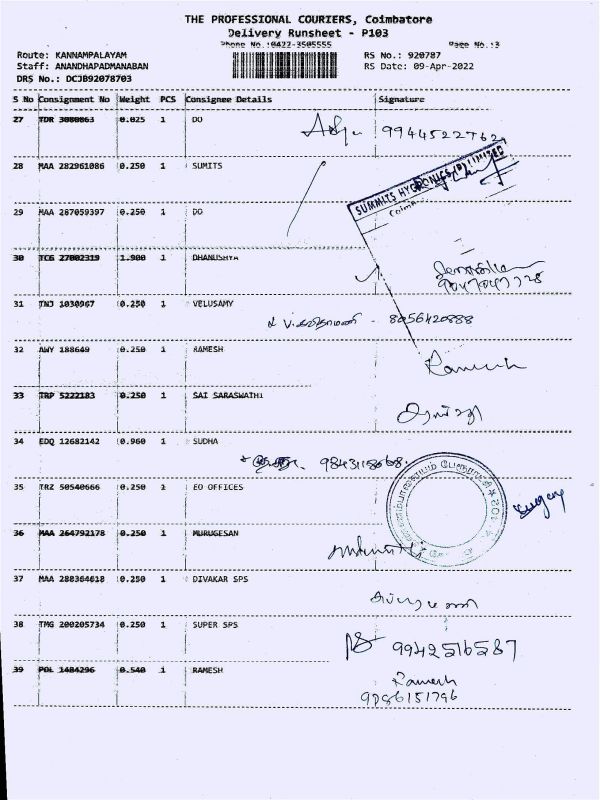 THE PROFESSIONAL COURIERS, Coimbatore
Delivery Runsheet - P103
Phone No.:0422-3505555 Page No.:3
Route: KANNAMPALAYAM RS No.: 920787
Staff: ANANDHAPADMANABAN RS Date: 09-Apr-2022
DRS No.: DCJB92078703
S No Consignment No Weight PCS Consignee Details Signature
27 TDR 3000063 0.025 1 DO
28 MAA 282961086 0.250 1 SUMITS
SUMMITS HYGRONICS (P) LIMITED
29 MAA 287059397 0.250 1 DO
30 TCG 27002319 1.900 1 DHANUSHYA
31 TNJ 1030967 0.250 1 VELUSAMY
8056420888
32 AWY 188649 0.250 1 RAMESH
Ramesh
33 TRP 5222183 0.250 1 SAI SARASWATHI
34 EDQ 12682142 0.960 1 SUDHA
35 TRZ 50540666 0.250 1 EO OFFICES
36 MAA 264792178 0.250 1 MURUGESAN
37 MAA 288364618 0.250 1 DIVAKAR SPS
38 TMG 200205734 0.250 1 SUPER SPS
9942516587
39 POL 1484296 0.540 1 RAMESH
Ramesh
9786151796